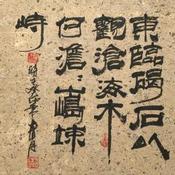 東臨碣石以
觀滄海水
何澹〻嶋竦
峙